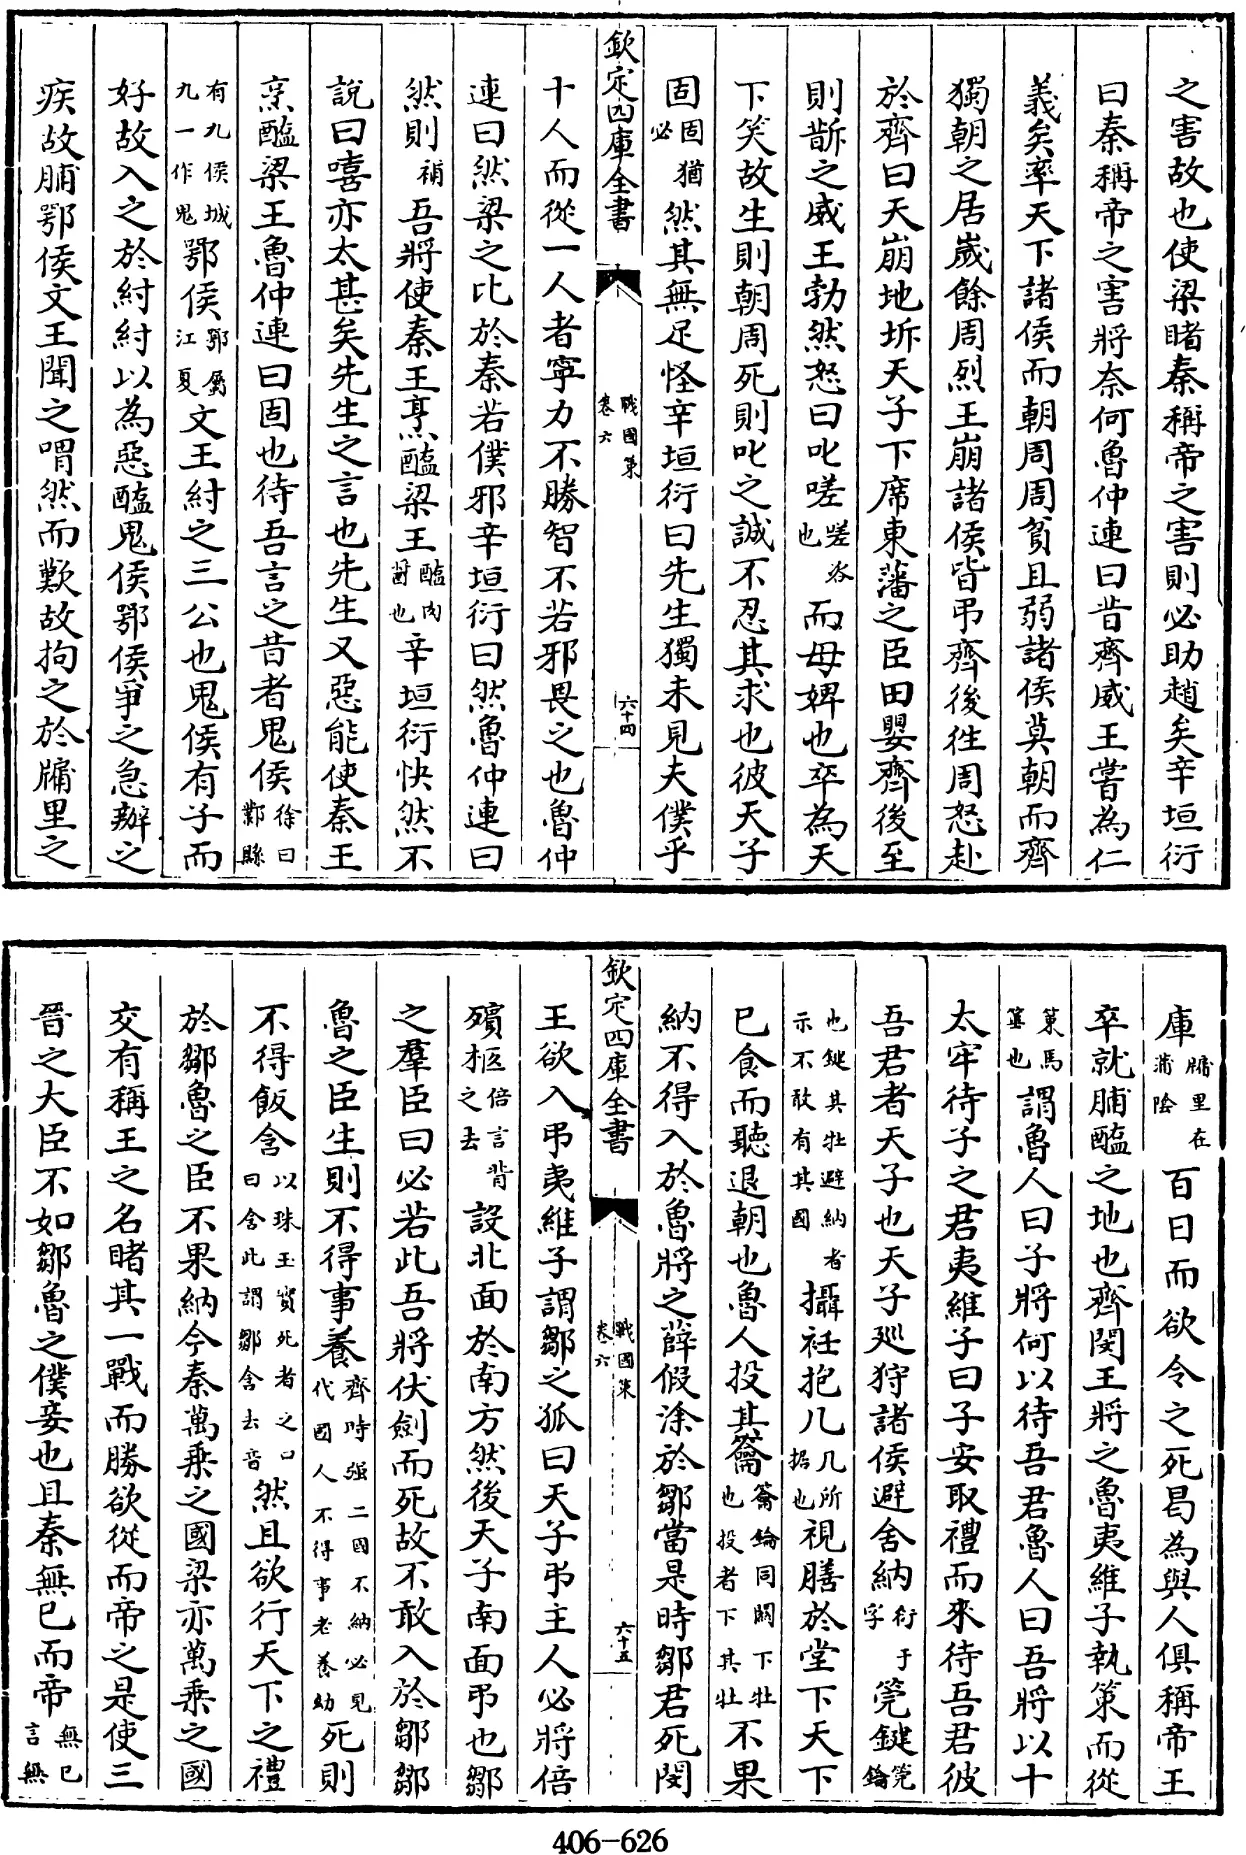 之害故也使梁睹秦稱帝之害則必助趙矣辛垣衍
曰秦稱帝之害將奈何魯仲連曰昔齊威王嘗為仁
義矣率天下諸侯而朝周周貧且弱諸侯莫朝而齊
獨朝之居歲餘周烈王崩諸侯皆弔齊後往周怒赴
於齊曰天崩地坼天子下席東藩之臣田嬰齊後至
則斮之威王勃然怒曰叱嗟嗟咨也而母婢也卒為天
下笑故生則朝周死則叱之誠不忍其求也彼天子
固固猶必然其無足怪辛垣衍曰先生獨未見夫僕乎
欽定四庫全書
戰國策卷六
六十四
十人而從一人者寧力不勝智不若邪畏之也魯仲
連曰然梁之比於秦若僕邪辛垣衍曰然魯仲連曰
然則補吾將使秦王烹醢梁王醢肉醬也辛垣衍怏然不
說曰嘻亦太甚矣先生之言也先生又惡能使秦王
烹醢梁王魯仲連曰固也待吾言之昔者鬼侯徐曰鄴縣
有九侯城九一作鬼鄂侯鄂屬江夏文王紂之三公也鬼侯有子而
好故入之於紂紂以為惡醢鬼侯鄂侯爭之急辦之
疾故脯鄂侯文王聞之喟然而歎故拘之於牖里之
庫牖里在蕩陰百日而欲令之死曷為與人俱稱帝王
卒就脯醢之地也齊閔王將之魯夷維子執策而從
策馬箠也謂魯人曰子將何以待吾君魯人曰吾將以十
太牢待子之君夷維子曰子安取禮而來待吾君彼
吾君者天子也天子巡狩諸侯避舍納衍于字筦鍵筦鑰
也鍵其牡避納者示不敢有其國攝衽抱几几所據也視膳於堂下天下
已食而聽退朝也魯人投其籥籥鑰同關下牡也投者下其牡不果
納不得入於魯將之薛假涂於鄒當是時鄒君死閔
欽定四庫全書
戰國策卷六
六十五
王欲入弔夷維子謂鄒之孤曰天子弔主人必將倍
殯柩倍言背之去設北面於南方然後天子南面弔也鄒
之羣臣曰必若此吾將伏劍而死故不敢入於鄒鄒
魯之臣生則不得事養齊時強二國不納必見代國人不得事老養幼死則
不得飯含以珠玉實死者之口曰含此謂鄒含去音然且欲行天下之禮
於鄒魯之臣不果納今秦萬乘之國梁亦萬乘之國
交有稱王之名睹其一戰而勝欲從而帝之是使三
晉之大臣不如鄒魯之僕妾也且秦無已而帝無已言無
406-626